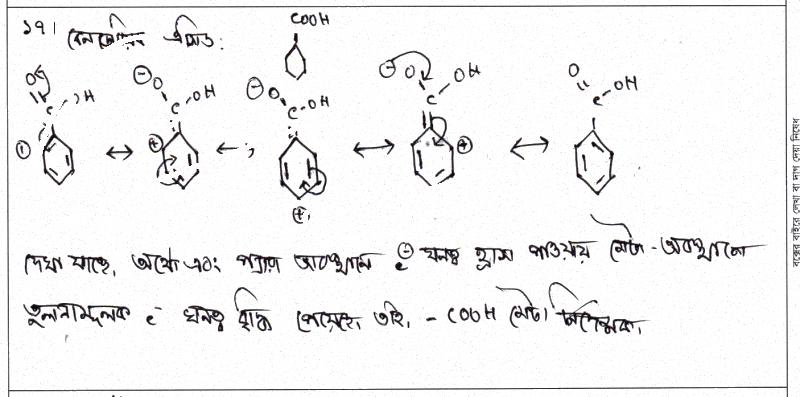 ১৭। বেনজোয়িক এসিড:
COOH
O C OH ⊖ O C OH ⊖ O C OH ⊖ O C OH O C OH
↔ ↔ ↔ ↔
⊕ ⊕ ⊕
দেখা যাচ্ছে, অর্থো এবং প্যারা অবস্থানে e⊖ ঘনত্ব হ্রাস পাওয়ায় মেটা-অবস্থানে
তুলনামূলক e⁻ ঘনত্ব বৃদ্ধি পেয়েছে, তাই, -COOH মেটা নির্দেশক।
বক্সের বাইরে লেখা বা দাগ দেয়া নিষেধ